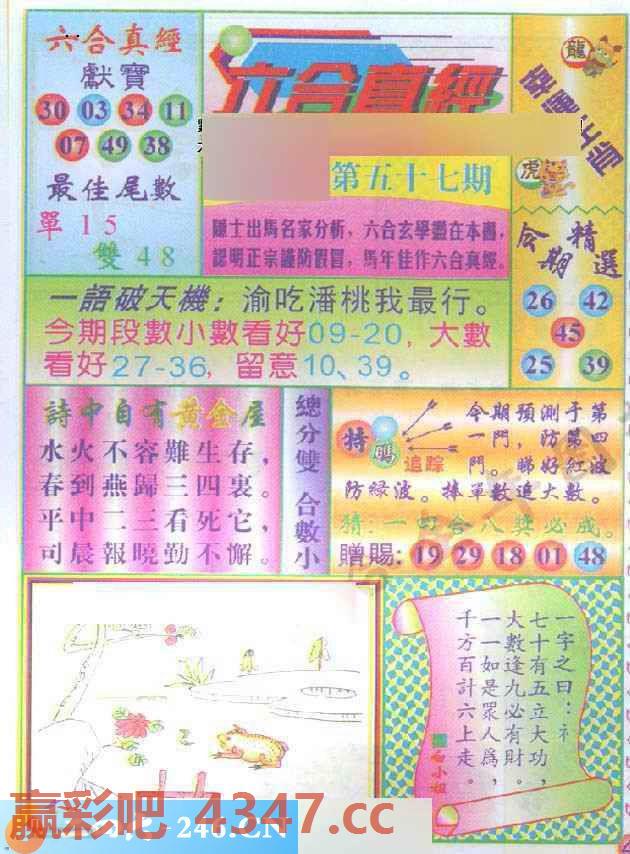 六合真經
獻寶
30 03 34 11
07 49 38
最佳尾數
單 1 5
雙 4 8
六合真經
第五十七期
隱士出馬名家分析，六合玄學盡在本圖，
認明正宗謹防假冒，馬年佳作六合真經。
龍
虎
今期精選
26 42
45
25 39
一語破天機：渝吃潘桃我最行。
今期段數小數看好09-20，大數
看好27-36，留意10、39。
詩中自有黃金屋
水火不容難生存，
春到燕歸三四裏。
平中二三看死它，
司晨報曉勤不懈。
總分雙 合數小
特碼
追踪
今期預測于第
一門，防第四
門。睇好紅波
防綠波。捧單數追大數。
猜：一四合八獎必成。
贈賜：19 29 18 01 48
一字之曰：礻
七十有五立大功，
大數逢九必有財。
一一如是眾人為，
千方百計六上走。
白小姐
赢彩吧 4347.cc
246.CN